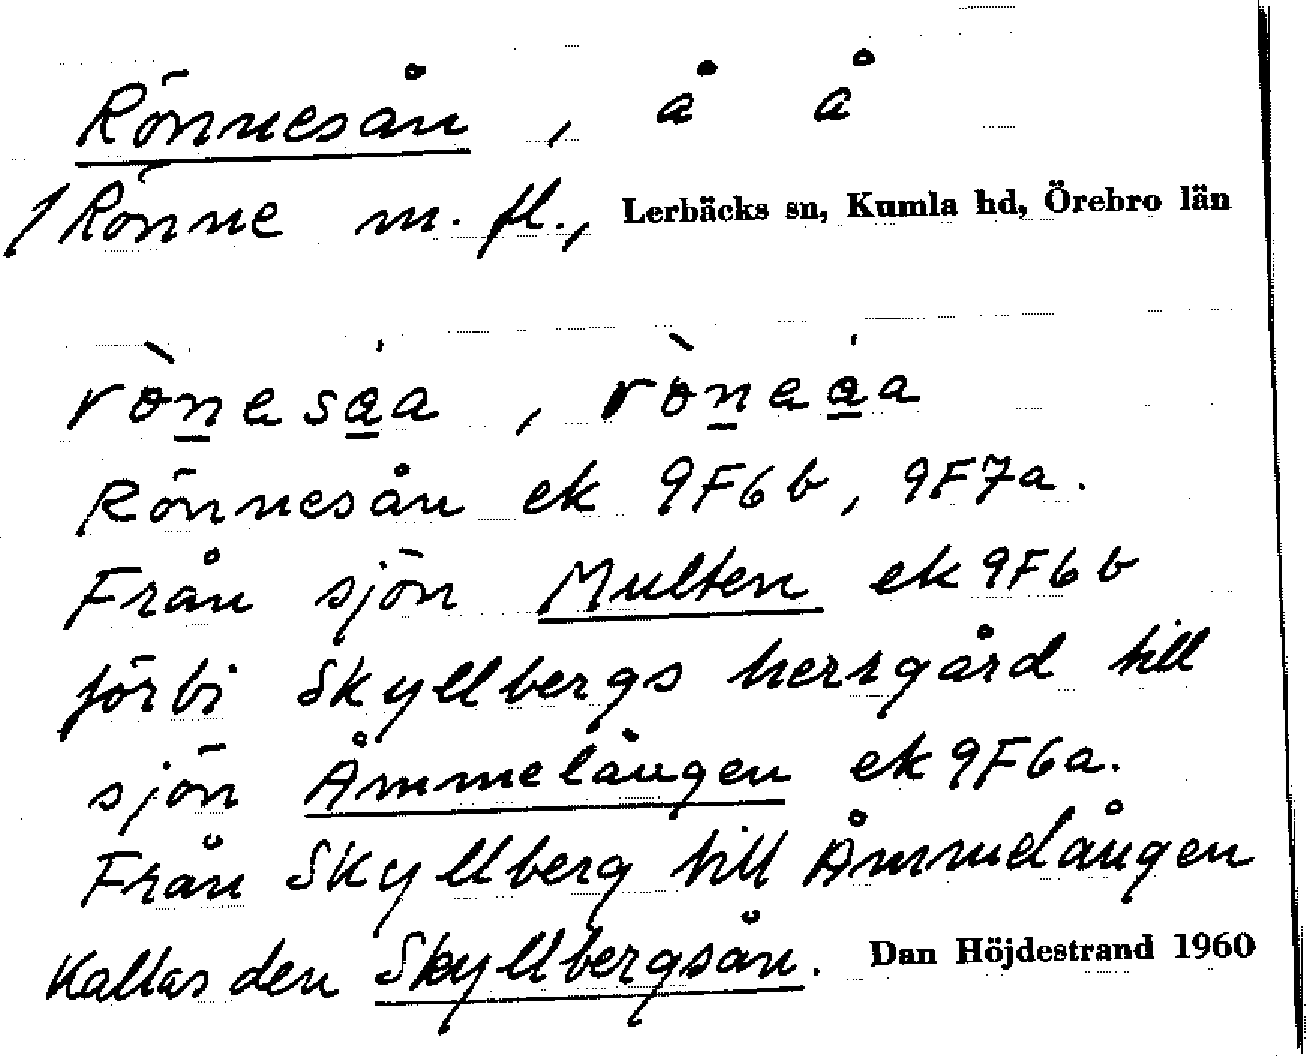 Rönnesån , å å
/Rönne m. fl., Lerbäcks sn, Kumla hd, Örebro län
rònesa̱a , rònea̱a
Rönnesån ek 9F6b, 9F7a.
Från sjön Multen ek 9F6b
förbi Skyllbergs herrgård till
sjön Åmmelången ek 9F6a.
Från Skyllberg till Åmmelången
kallas den Skyllbergsån. Dan Höjdestrand 1960